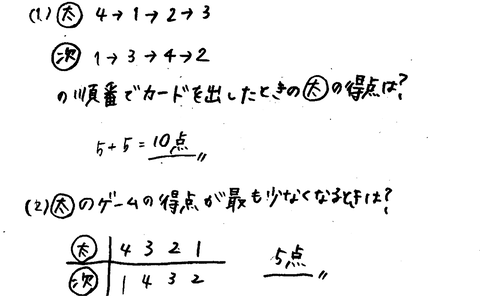 (1) 太 4→1→2→3
次 1→3→4→2
の順番でカードを出したときの太の得点は?
5+5=10点〃
(2)太のゲームの得点が最も少なくなるときは?
太 4 3 2 1
次 1 4 3 2 5点〃